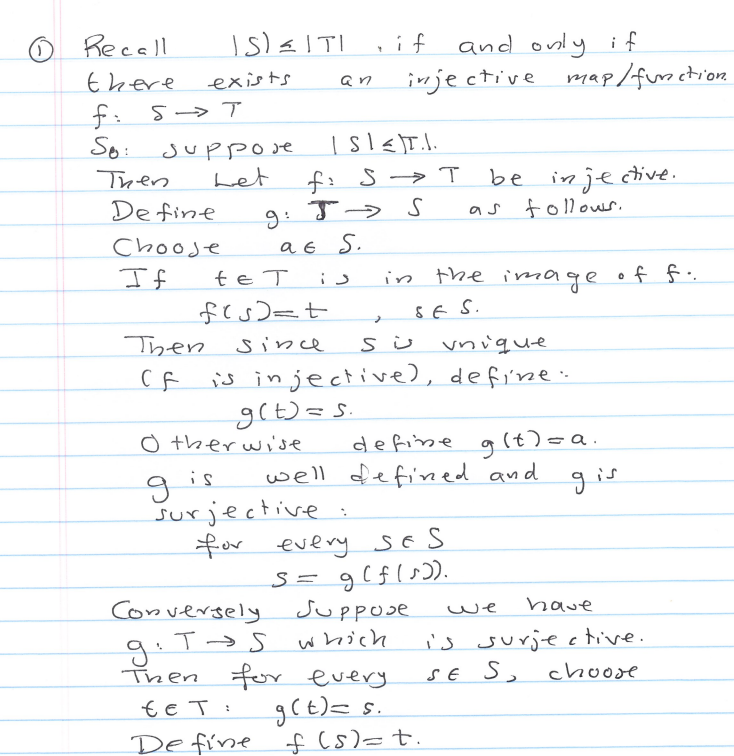 ① Recall |S| ≤ |T|, if and only if
there exists an injective map/function
f: S → T
So: suppose |S| ≤ |T|.
Then Let f: S → T be injective.
Define g: T → S as follows.
Choose a ∈ S.
If t ∈ T is in the image of f:
f(s) = t, s ∈ S.
Then since s is unique
(f is injective), define:
g(t) = s.
Otherwise define g(t) = a.
g is well defined and g is
surjective:
for every s ∈ S
s = g(f(s)).
Conversely suppose we have
g: T → S which is surjective.
Then for every s ∈ S, choose
t ∈ T: g(t) = s.
Define f(s) = t.